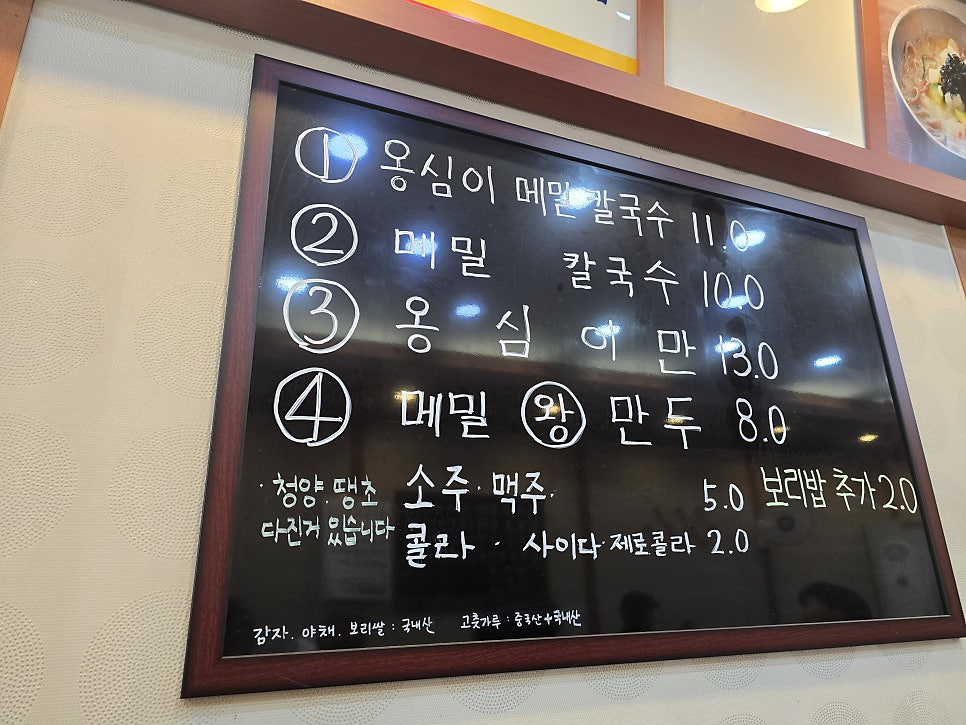 ① 옹심이 메밀 칼국수 11.0
② 메밀 칼국수 10.0
③ 옹심이만 13.0
④ 메밀 왕 만두 8.0
· 청양. 땡초
다진거 있습니다
소주 · 맥주. 5.0
보리밥 추가 2.0
콜라 · 사이다 · 제로콜라 2.0
감자. 야채. 보리쌀 : 국내산 고춧가루 : 중국산+국내산